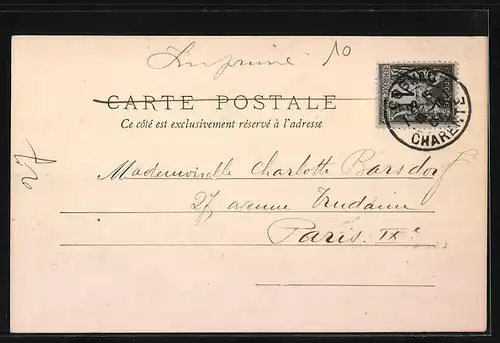 Imprimé 10
CARTE POSTALE
Ce côté est exclusivement réservé à l'adresse
Mademoiselle Charlotte Barsdorf
27, avenue Trudaine
Paris. IXe
CHARENTE